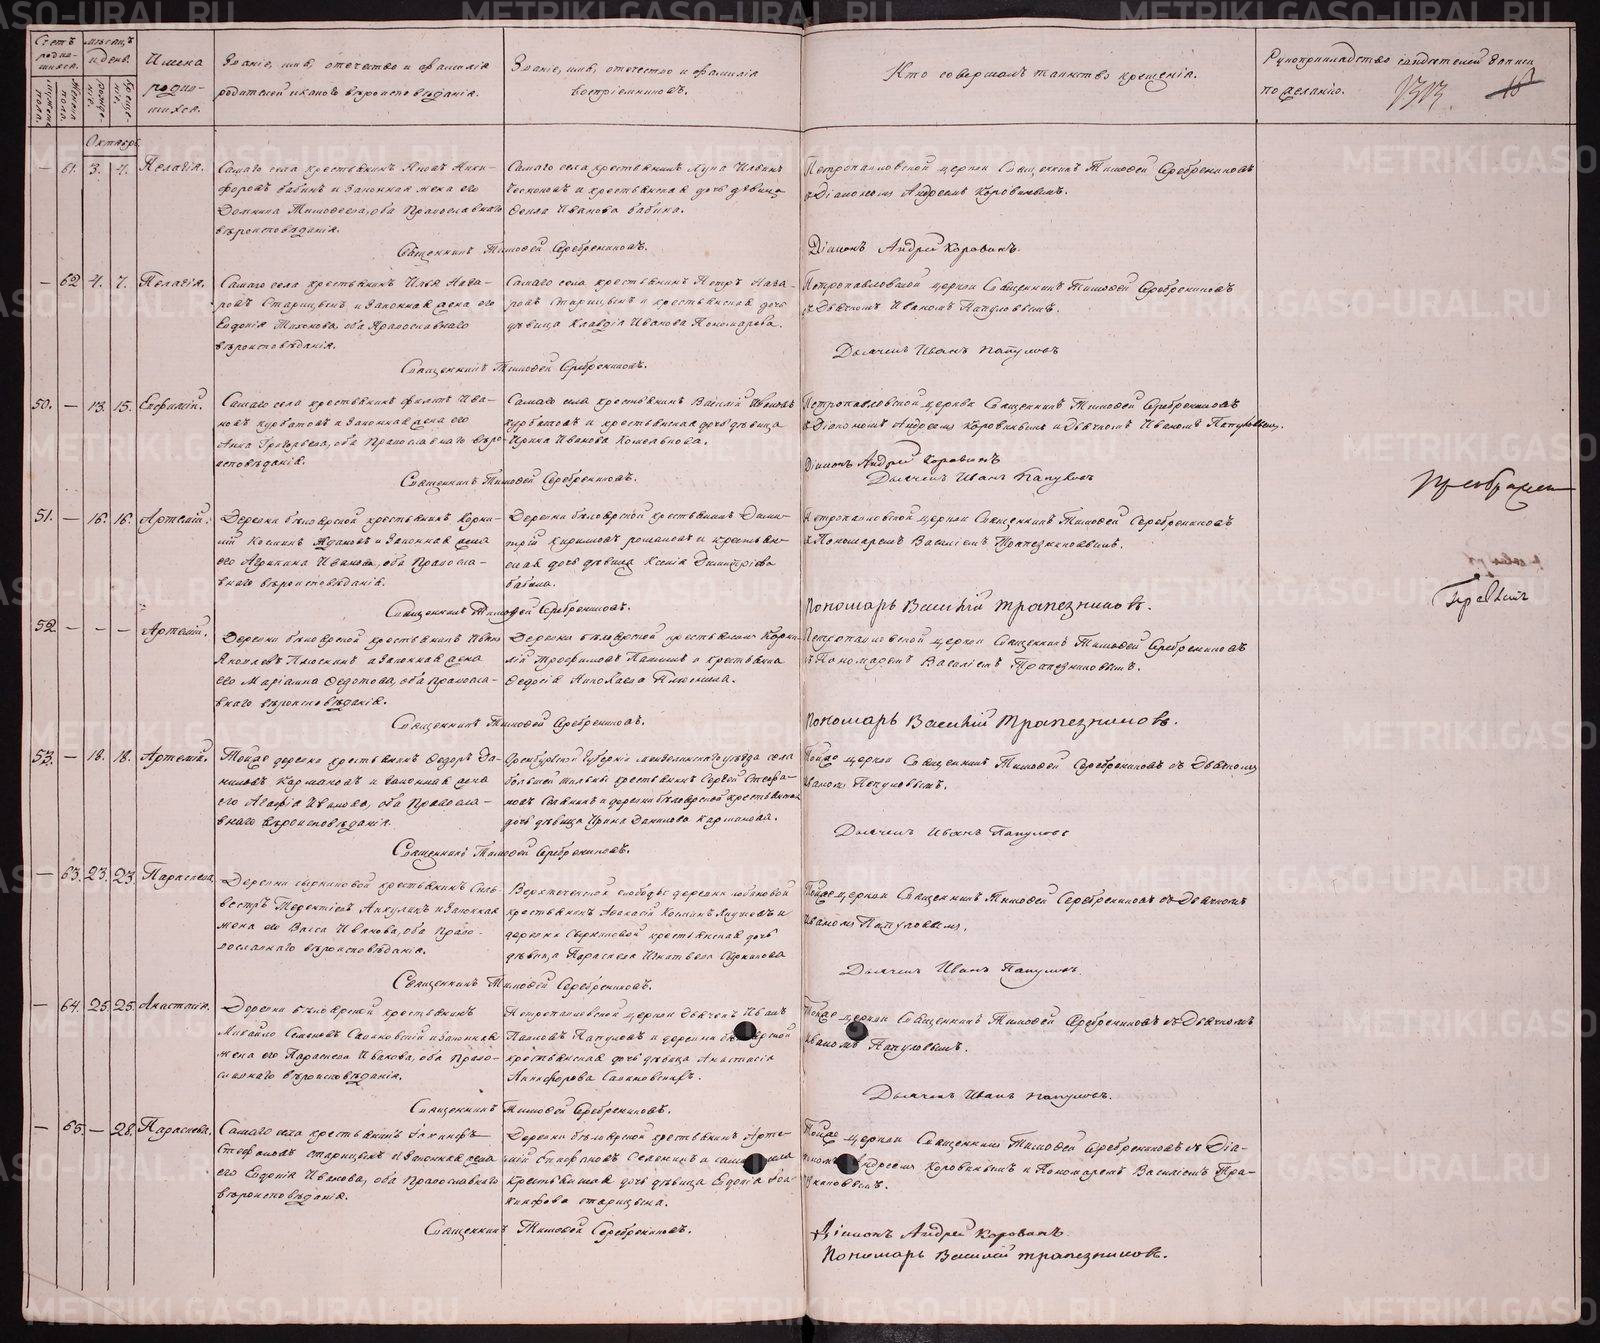 Счетъ родившихся.
Мѣсяцъ и день.
Имена родившихся.
Званіе, имя, отечество и фамилія
родителей и какого вѣроисповѣданія.
Званіе, имя, отечество и фамилія
воспріемниковъ.
Кто совершалъ таинство крещенія.
Рукоприкладство свидѣтелей записи
по желанію.
Октябрь
— 61. 3. 4. Пелагія.
Самаго села крестьянинъ Яковъ Ники-
форовъ Бабинъ и законная жена его
Домника Тимофеева, оба Православнаго
вѣроисповѣданія.
Самаго села крестьянинъ Лука Ильинъ
и крестьянская дочь дѣвица
Ивановa Бабина.
Петропавловской церкви Священникъ Тимофей Серебрениковъ
съ Діакономъ Андреемъ Коровинымъ.
Священникъ Тимофей Серебрениковъ.
Діаконъ Андрей Коровинъ.
— 62 4. 7. Пелагія.
Самаго села крестьянинъ Илья Наза-
ровъ Старицынъ и законная жена его
Евдокія Тихонова, оба Православнаго
вѣроисповѣданія.
Самаго села крестьянинъ Петръ Наза-
ровъ Старицынъ и крестьянская дочь
дѣвица Клавдія Иванова Пономарева.
Петропавловской церкви Священникъ Тимофей Серебрениковъ
съ Дьячкомъ Иваномъ Папуловымъ.
Священникъ Тимофей Серебрениковъ.
Дьячекъ Иванъ Папуловъ
50. — 13. 15. Евфимій.
Самаго села крестьянинъ Филипъ Ива-
новъ Курбатовъ и законная жена его
Анна Григорьева, оба Православнаго вѣро-
исповѣданія.
Самаго села крестьянинъ Василій Ивановъ
Курбатовъ и крестьянская дочь дѣвица
Ирина Иванова
Петропавловской церкви Священникъ Тимофей Серебрениковъ
съ Діакономъ Андреемъ Коровинымъ и Дьячкомъ Иваномъ Папуловымъ.
Священникъ Тимофей Серебрениковъ.
Діаконъ Андрей Коровинъ
Дьячекъ Иванъ Папуловъ
51. — 16. 16. Артемій.
Деревни Бѣлоярской крестьянинъ Корни-
лій Косминъ Ждановъ и законная жена
его Агрипина Иванова, оба Правосла-
внаго вѣроисповѣданія.
Деревни Бѣлоярской крестьянинъ Дими-
трій Кириловъ Романовъ и крестьян-
ская дочь дѣвица Ксенія Димитріева
Бабина.
Петропавловской церкви Священникъ Тимофей Серебрениковъ
съ Пономаремъ Василіемъ Трапезниковымъ.
Священникъ Тимофей Серебрениковъ.
Пономарь Василій Трапезниковъ.
52 — — — Артемій.
Деревни Бѣлоярской крестьянинъ Иванъ
Яковлевъ Плюснинъ и законная жена
его Маріанна Федотова, оба Правосла-
внаго вѣроисповѣданія.
Деревни Бѣлоярской крестьянинъ Корни-
лій Трофимовъ и крестьянка
Федосія Николаева Плюснина.
Петропавловской церкви Священникъ Тимофей Серебрениковъ
съ Пономаремъ Василіемъ Трапезниковымъ.
Священникъ Тимофей Серебрениковъ.
Пономарь Василій Трапезниковъ.
53. — 18. 18. Артемій.
Тойже деревни крестьянинъ Федоръ Да-
ниловъ Кармановъ и законная жена
его Агафія Иванова, оба Правосла-
внаго вѣроисповѣданія.
Оренбургской Губерніи уѣзда села
крестьянинъ Сергей Стефа-
новъ и деревни Бѣлоярской крестьянская
дочь дѣвица Ирина Данилова Карманова.
Тойже церкви Священникъ Тимофей Серебрениковъ съ Дьячкомъ
Иваномъ Папуловымъ.
Священникъ Тимофей Серебрениковъ.
Дьячекъ Иванъ Папуловъ
— 63. 23. 23. Параскева
Деревни Сыркиновой крестьянинъ Силь-
вестръ Терентіевъ Аникинъ и законная
жена его Васса Иванова, оба Право-
славнаго вѣроисповѣданія.
Верхтеченской слободы деревни
крестьянинъ Афанасій Косминъ и
деревни Сыркиновой крестьянская дочь
дѣвица Параскева Игнатьева Сыркинова
Тойже церкви Священникъ Тимофей Серебрениковъ съ Дьячкомъ
Иваномъ Папуловымъ.
Священникъ Тимофей Серебрениковъ.
Дьячекъ Иванъ Папуловъ.
— 64. 25. 25. Анастасія.
Деревни Бѣлоярской крестьянинъ
Михайло Семеновъ и законная
жена его Параскева Иванова, оба Право-
славнаго вѣроисповѣданія.
Петропавловской церкви Дьячекъ Иванъ
Павловъ Папуловъ и деревни Бѣлоярской
крестьянская дочь дѣвица Анастасія
Никифорова
Тойже церкви Священникъ Тимофей Серебрениковъ съ Дьячкомъ
Иваномъ Папуловымъ.
Священникъ Тимофей Серебрениковъ.
Дьячекъ Иванъ Папуловъ.
— 65. — 28. Параскева.
Самаго села крестьянинъ Іакинфъ
Стефановъ Старицынъ и законная жена
его Евдокія Иванова, оба Православнаго
вѣроисповѣданія.
Деревни Бѣлоярской крестьянинъ Арте-
мій Стефановъ Семенинъ и самаго села
крестьянская дочь дѣвица Евдокія Іа-
кинфова Старицына.
Тойже церкви Священникъ Тимофей Серебрениковъ съ Діа-
кономъ Андреемъ Коровинымъ и Пономаремъ Василіемъ Тра-
пезниковымъ.
Священникъ Тимофей Серебрениковъ.
Діаконъ Андрей Коровинъ.
Пономарь Василій Трапезниковъ.
METRIKI.GASO-URAL.RU